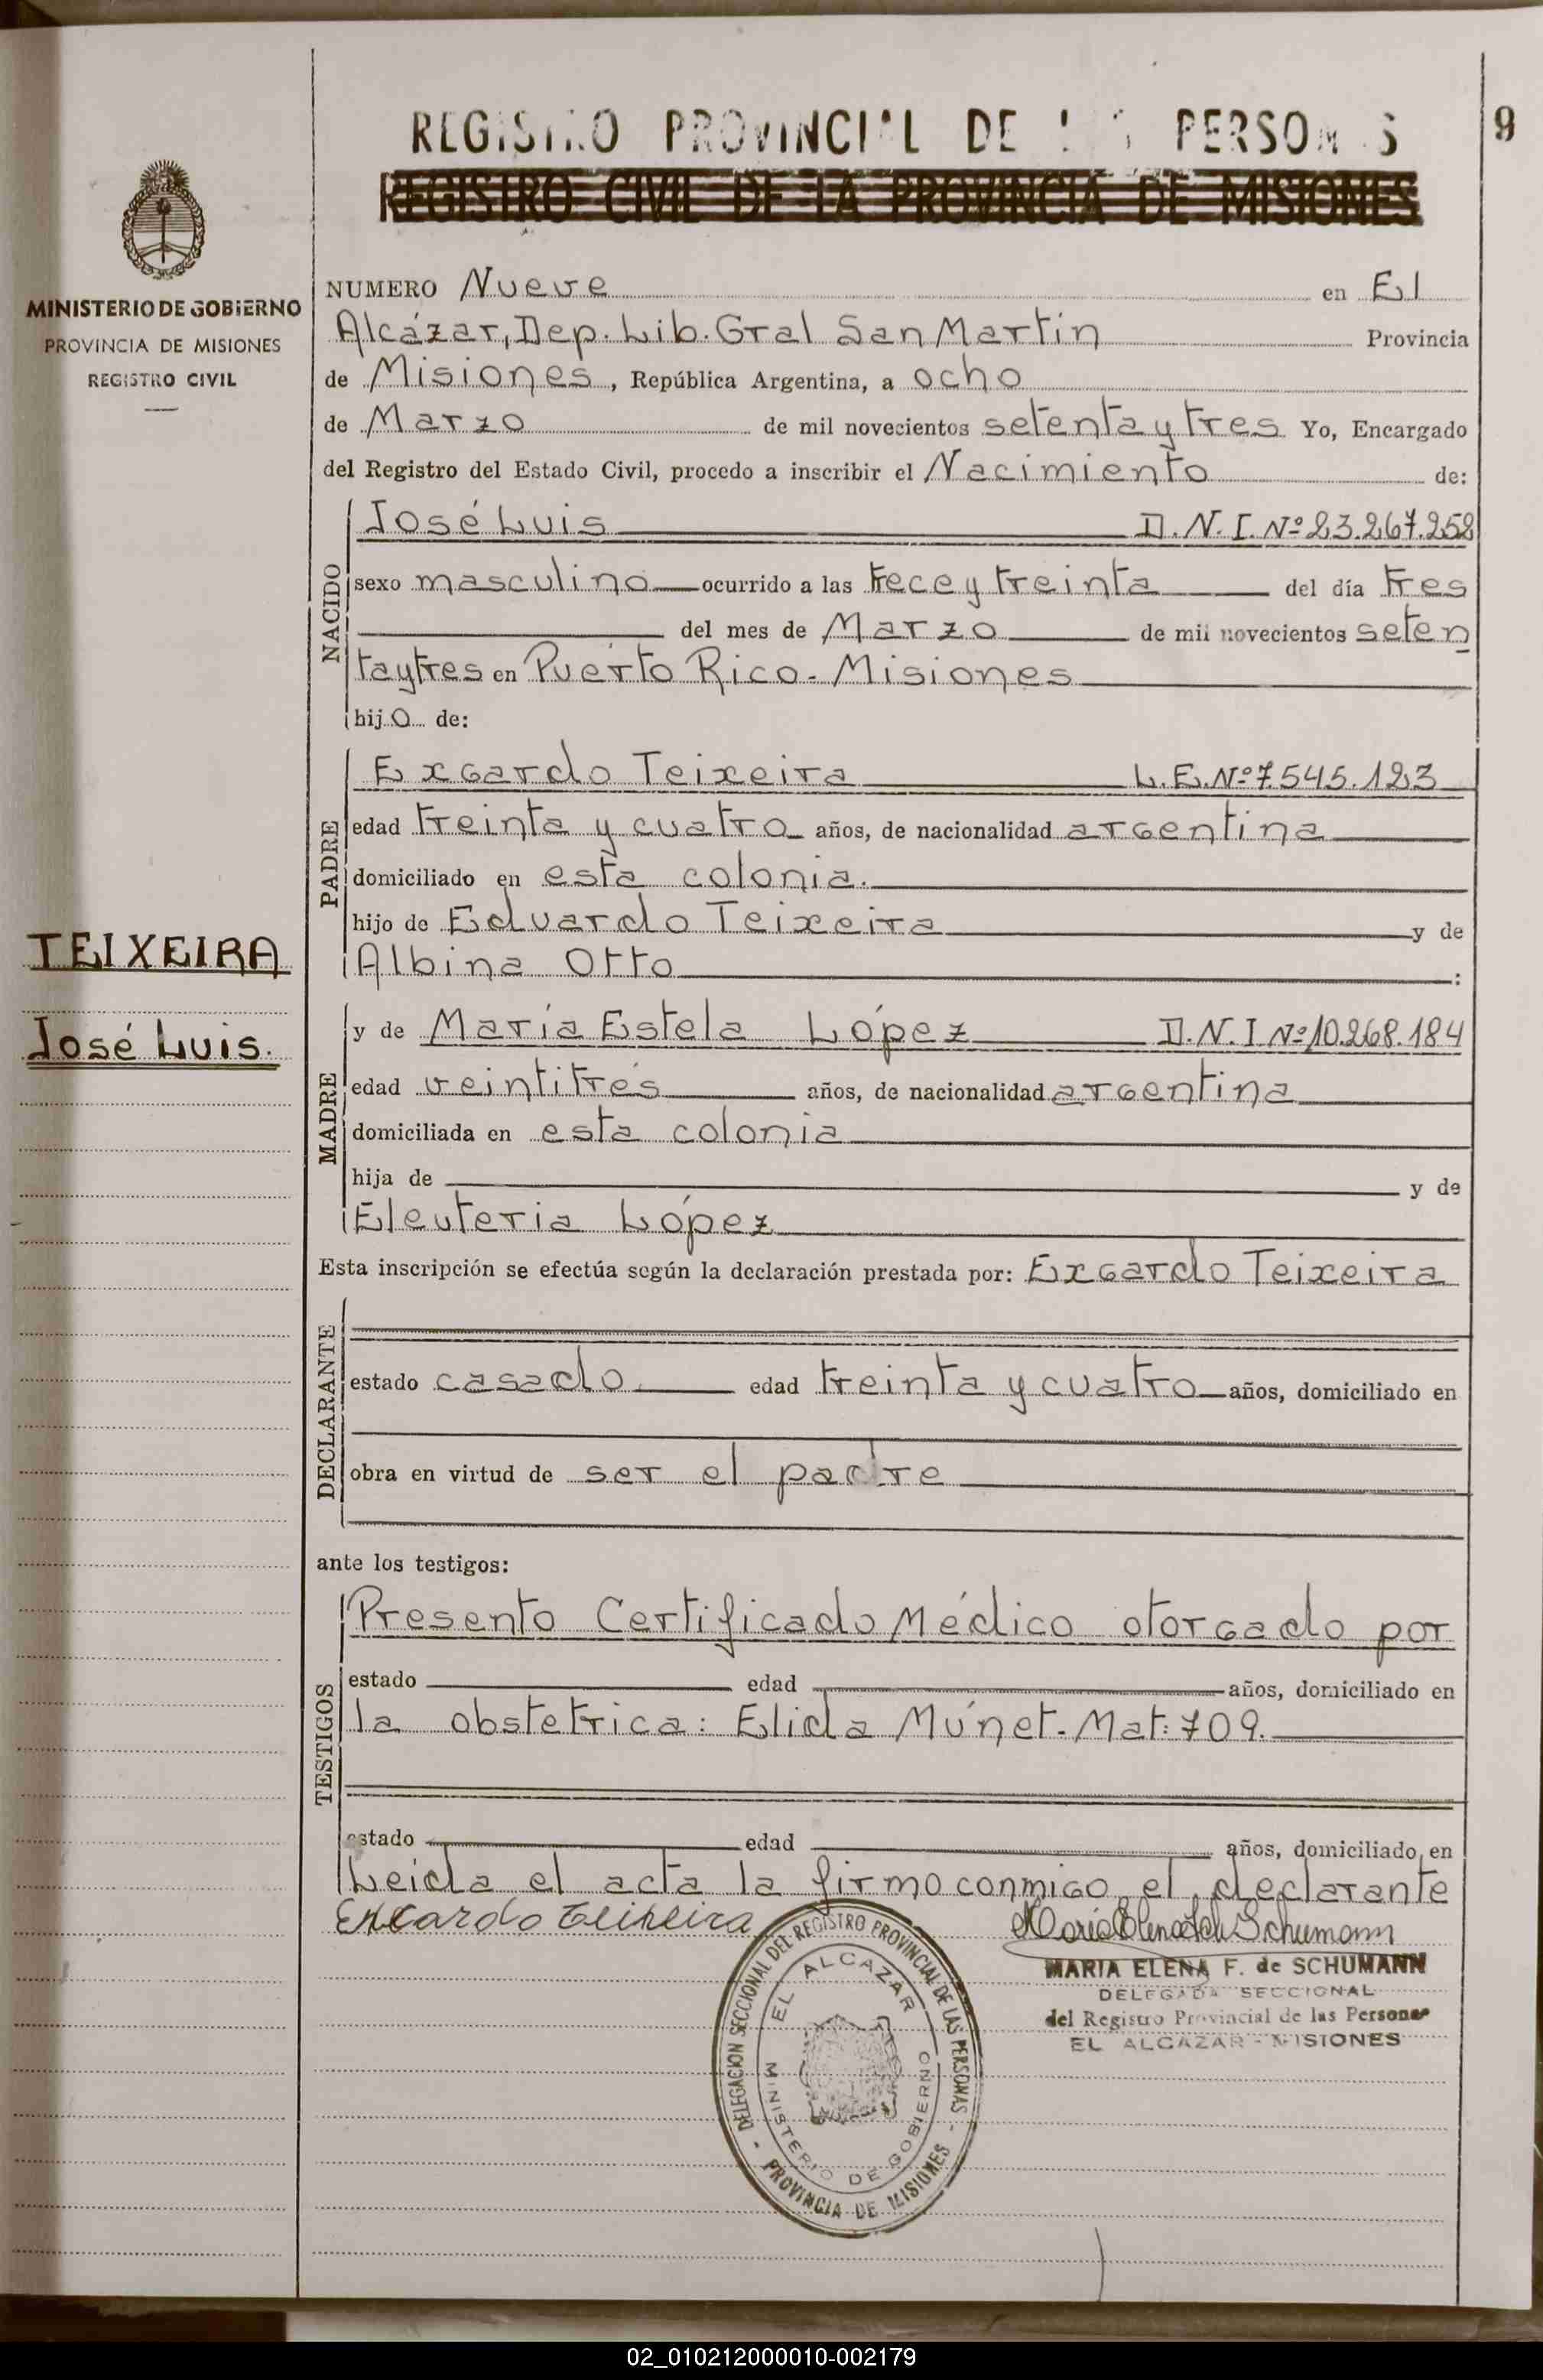 REGISTRO PROVINCIAL DE LAS PERSONAS
9
REGISTRO CIVIL DE LA PROVINCIA DE MISIONES
MINISTERIO DE GOBIERNO
PROVINCIA DE MISIONES
REGISTRO CIVIL
NUMERO Nueve en El
Alcázar, Dep. Lib. Gral San Martín Provincia
de Misiones, República Argentina, a ocho
de Marzo de mil novecientos setenta y tres Yo, Encargado
del Registro del Estado Civil, procedo a inscribir el Nacimiento de:
NACIDO
José Luis D.N.I. Nº 23.267.252
sexo masculino ocurrido a las trece y treinta del día tres
del mes de Marzo de mil novecientos seten
ta y tres en Puerto Rico - Misiones
hijo de:
PADRE
Exgardo Teixeira L.E. Nº 7.545.123
edad treinta y cuatro años, de nacionalidad argentina
domiciliado en esta colonia.
hijo de Eduardo Teixeira y de
Albina Otto :
TEIXEIRA
José Luis.
MADRE
y de María Estela López D.N.I Nº 10.268.184
edad veintitrés años, de nacionalidad argentina
domiciliada en esta colonia
hija de y de
Eleuteria López
Esta inscripción se efectúa según la declaración prestada por: Exgardo Teixeira
DECLARANTE
estado casado edad treinta y cuatro años, domiciliado en
obra en virtud de ser el padre
ante los testigos:
TESTIGOS
Presento Certificado Médico otorgado por
estado edad años, domiciliado en
la obstetrica: Elida Múnet. Mat: 709.
estado edad años, domiciliado en
Leida el acta la firmo conmigo el declarante
Exgardo Teixeira
MARIA ELENA F. de SCHUMANN
DELEGADA SECCIONAL
del Registro Provincial de las Personas
EL ALCAZAR - MISIONES
DELEGACION SECCIONAL DEL REGISTRO PROVINCIAL DE LAS PERSONAS
- PROVINCIA DE MISIONES -
EL ALCAZAR
MINISTERIO DE GOBIERNO
02_010212000010-002179